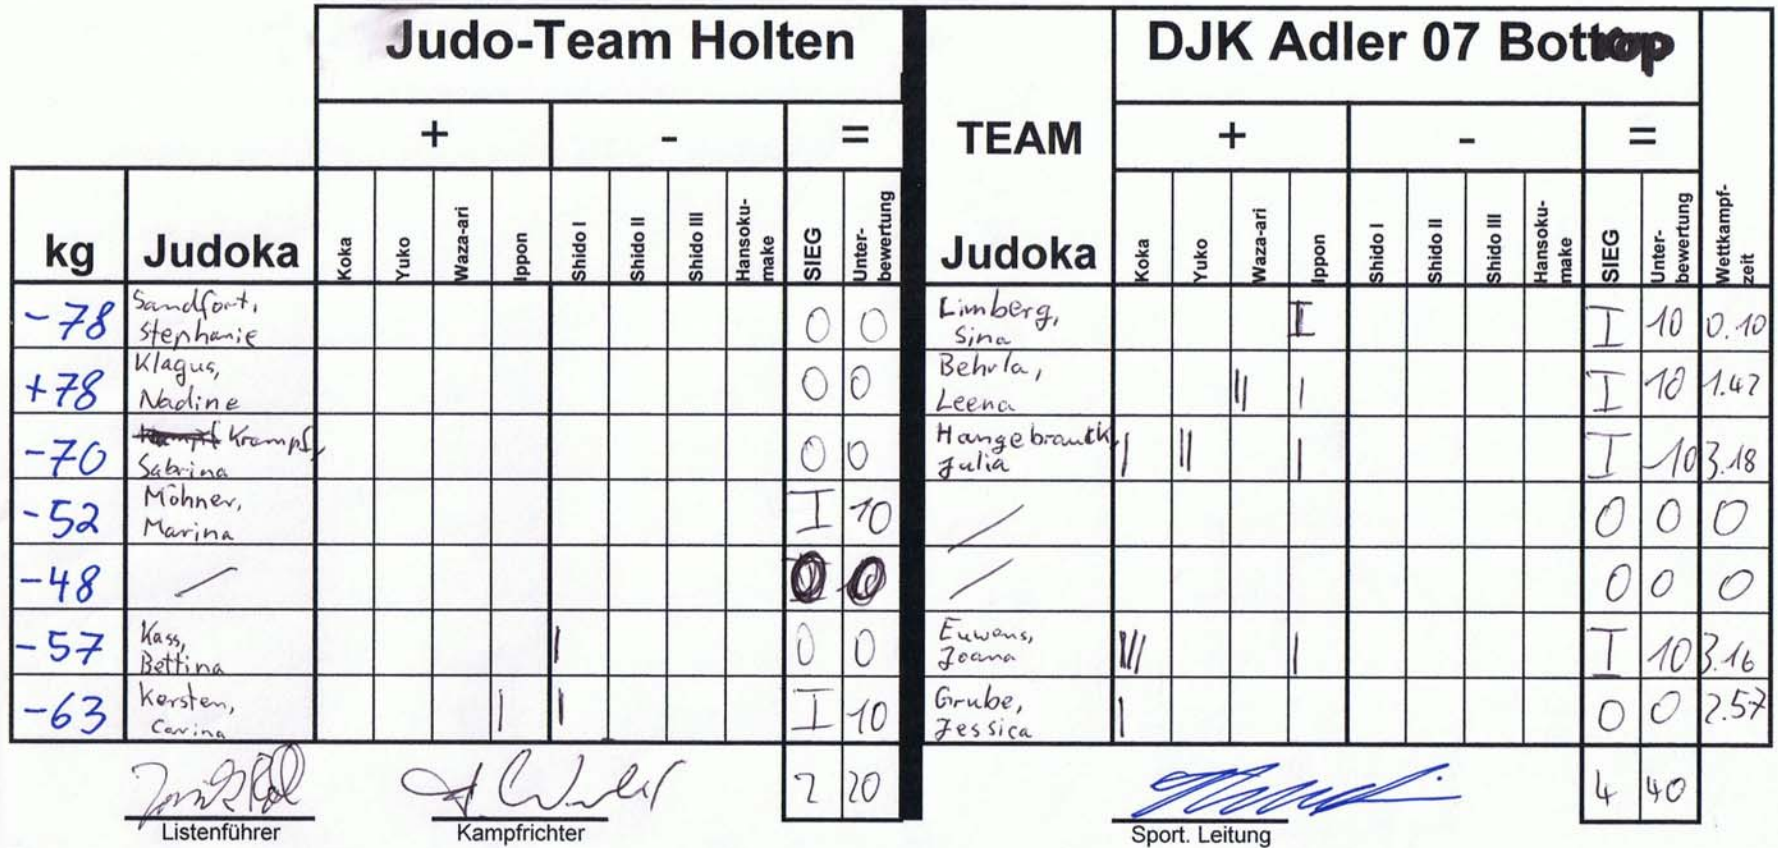 Judo-Team Holten DJK Adler 07 Bottrop
+ - = TEAM + - =
kg Judoka Koka Yuko Waza-ari Ippon Shido I Shido II Shido III Hansoku-make SIEG Unter-bewertung Judoka Koka Yuko Waza-ari Ippon Shido I Shido II Shido III Hansoku-make SIEG Unter-bewertung Wettkampf-zeit
-78 Sandfort, Stephanie 0 0 Limberg, Sina I I 10 0.10
+78 Klagus, Nadine 0 0 Behrla, Leena || | I 10 1.42
-70 Krampf, Sabrina 0 0 Hangebrauck, Julia | || | I 10 3.18
-52 Möhner, Marina I 10 / 0 0 0
-48 / 0 0 / 0 0 0
-57 Kass, Bettina | 0 0 Euwens, Joana |||| | I 10 3.16
-63 Kersten, Carina | | I 10 Grube, Jessica | 0 0 2.57
2 20 4 40
Listenführer Kampfrichter Sport. Leitung